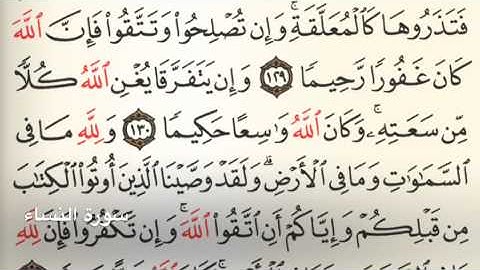 فَتَذَرُوهَا كَٱلْمُعَلَّقَةِۚ وَإِن تُصْلِحُوا۟ وَتَتَّقُوا۟ فَإِنَّ ٱللَّهَ
كَانَ غَفُورًا رَّحِيمًا ١٢٩ وَإِن يَتَفَرَّقَا يُغْنِ ٱللَّهُ كُلًّا
مِّن سَعَتِهِۦۚ وَكَانَ ٱللَّهُ وَٰسِعًا حَكِيمًا ١٣٠ وَلِلَّهِ مَا فِى
ٱلسَّمَٰوَٰتِ وَمَا فِى ٱلْأَرْضِۗ وَلَقَدْ وَصَّيْنَا ٱلَّذِينَ أُوتُوا۟ ٱلْكِتَٰبَ
سورة النساء
مِن قَبْلِكُمْ وَإِيَّاكُمْ أَنِ ٱتَّقُوا۟ ٱللَّهَۚ وَإِن تَكْفُرُوا۟ فَإِنَّ لِلَّهِ